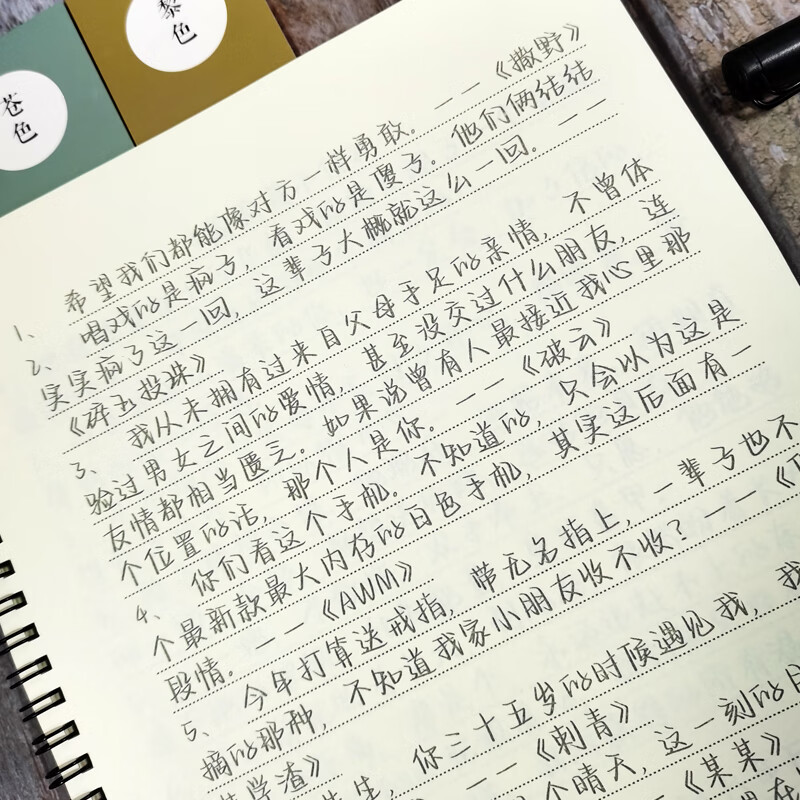 黎色
苍色
1、希望我们都能像对方一样勇敢。——《撒野》
2、唱戏的是疯子,看戏的是傻子。他们俩结结
实实疯了这一回,这辈子大概就这么一回。——
《碎玉投珠》
3、我从未拥有过来自父母手足的亲情,不曾体
验过男女之间的爱情,甚至没交过什么朋友,连
友情都相当匮乏。如果说曾有人最接近我心里那
个位置的话,那个人是你。——《破云》
4、你们看这个手机。不知道的,只会以为这是
个最新款最大内存的白色手机,其实这后面有一
段情。——《AWM》
5、今年打算送戒指,带无名指上,一辈子也不
摘的那种,不知道我家小朋友收不收?——《
学渣》
生,你三十五岁的时候遇见我,我
——《刺青》
个晴天,这一刻的
《某某》